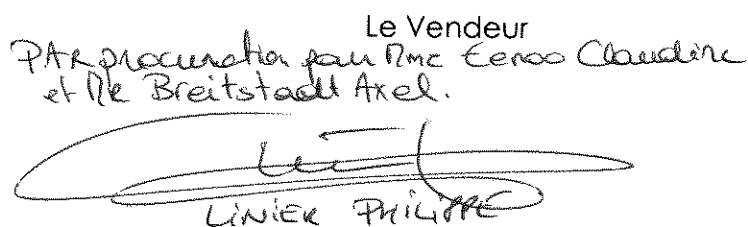 Le Vendeur
PAR procuration pour Mme Eenoo Claudine
et Mr Breitstadt Axel.
LINIER PHILIPPE